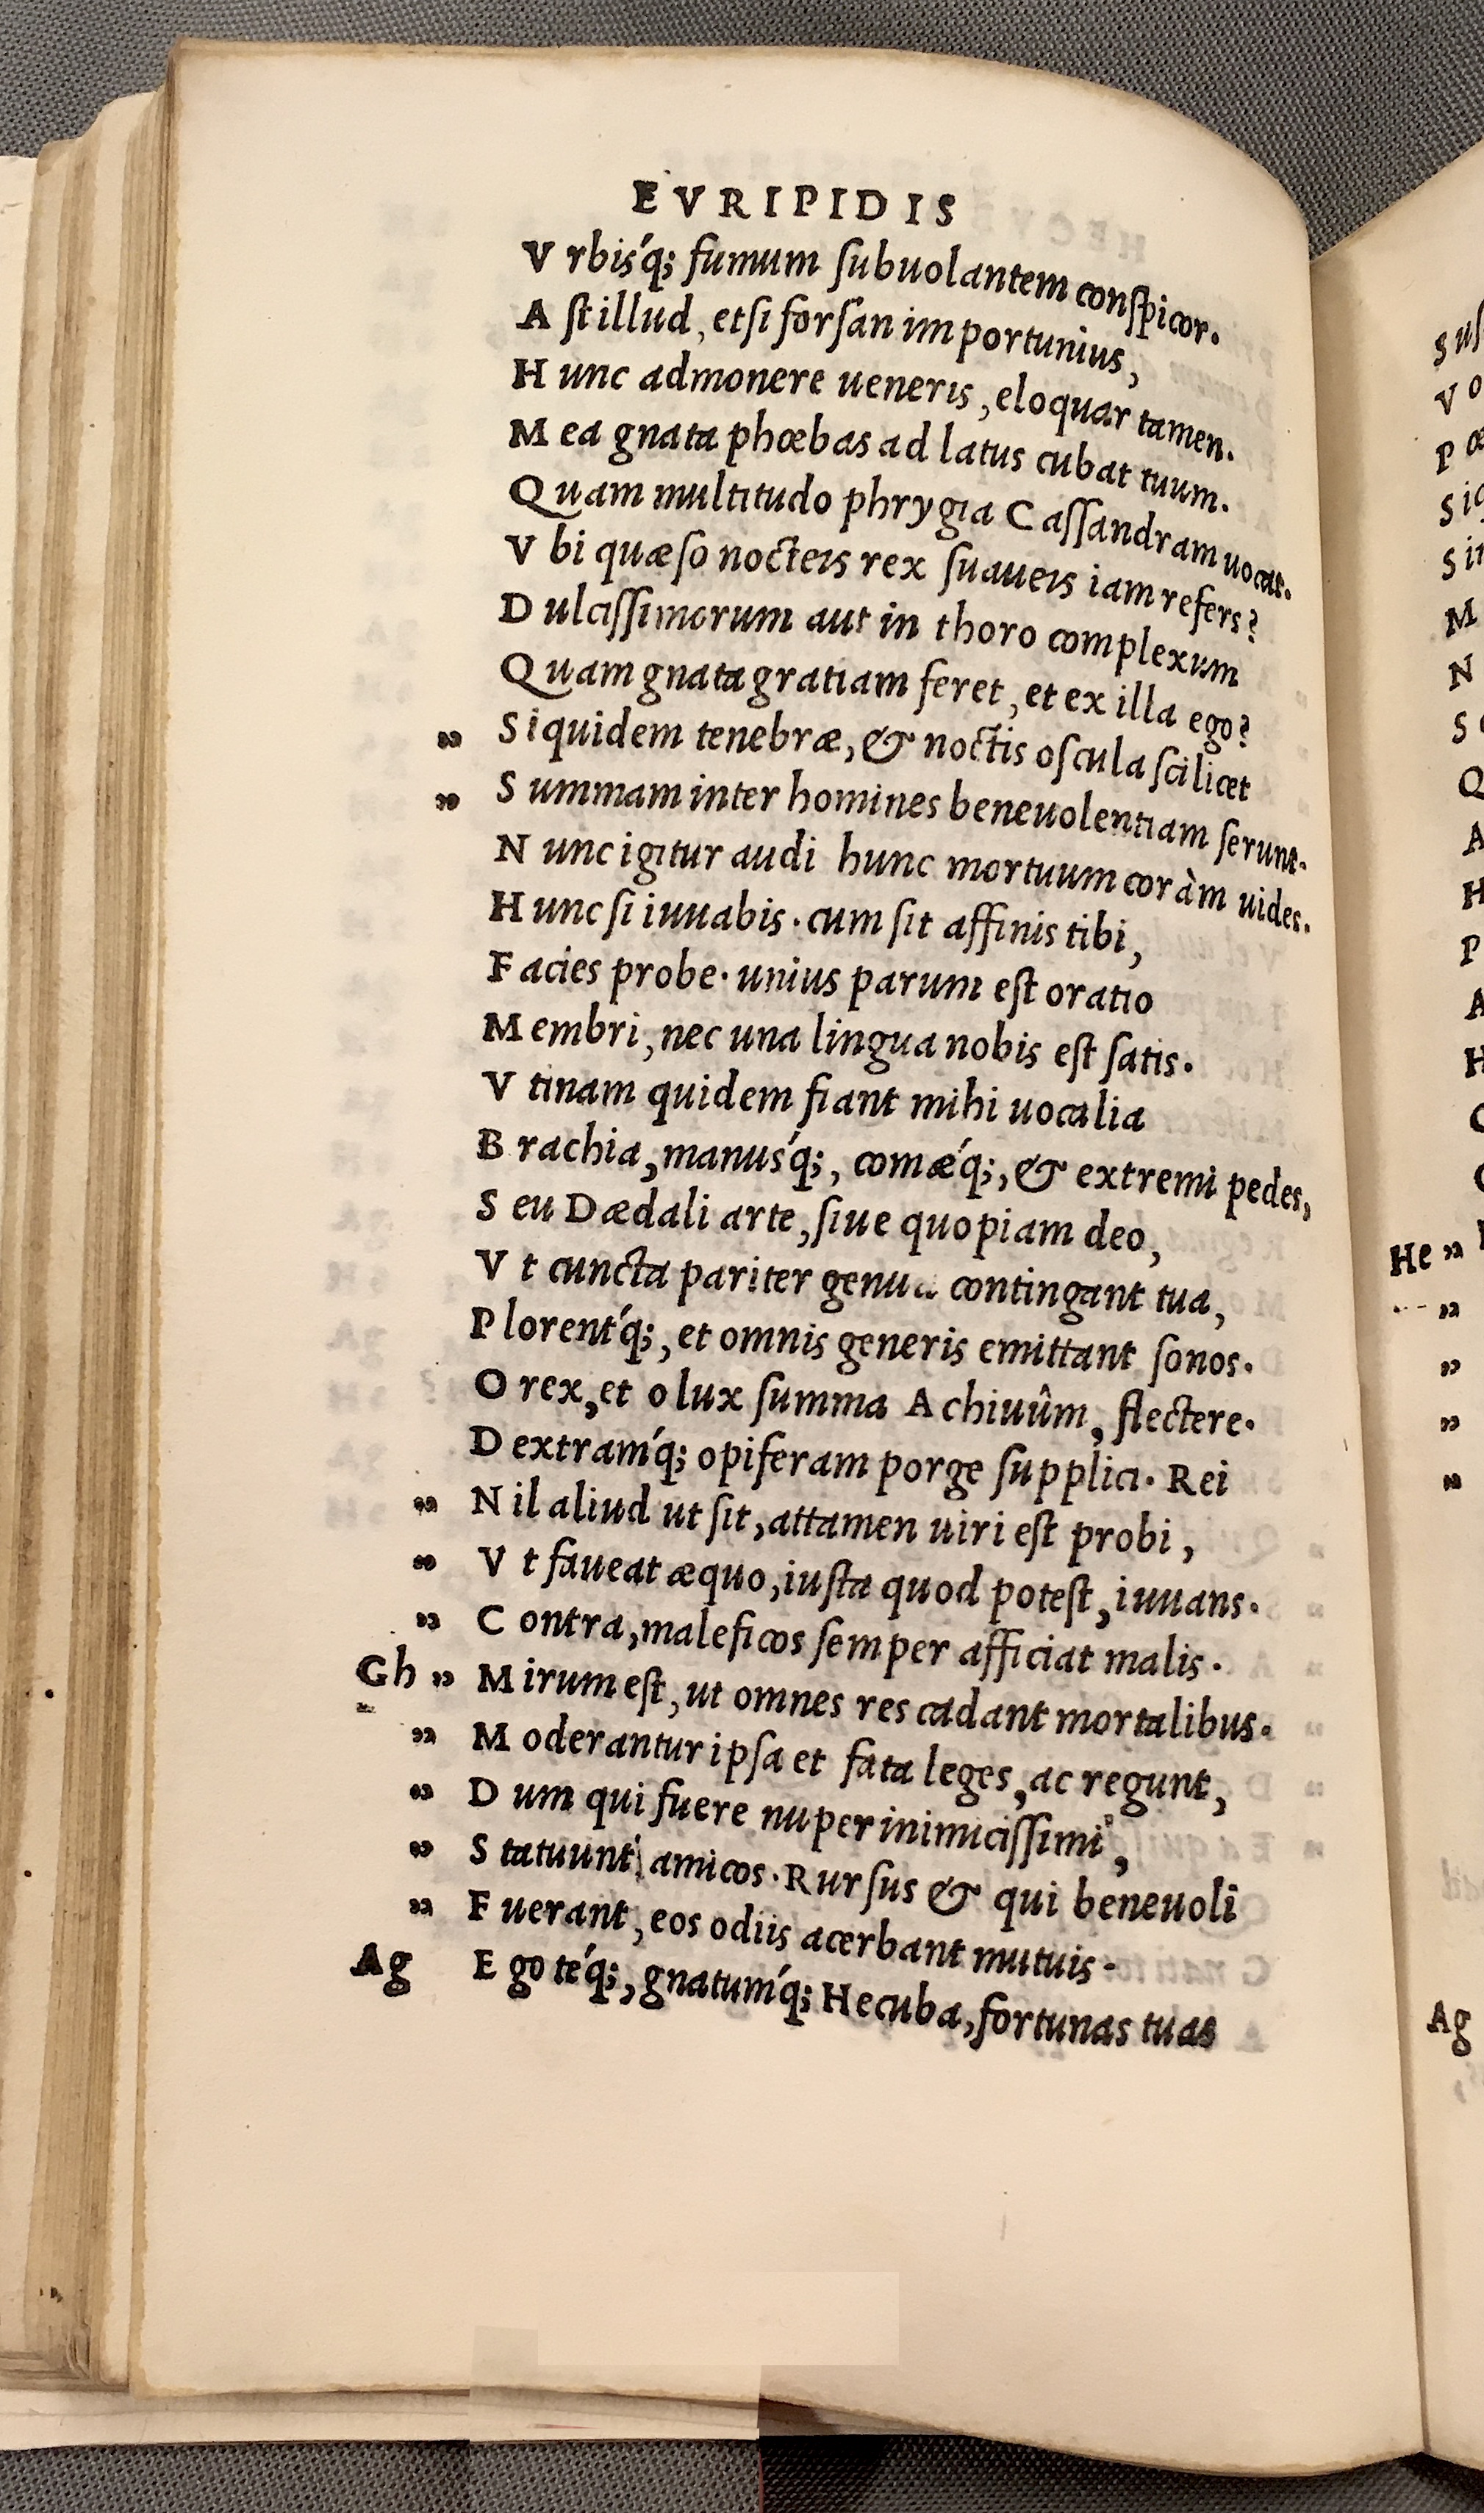 EVRIPIDIS
V rbisq́; fumum ſubuolantem conſpicor.
A ſt illud, etſi forſan importunius,
H unc admonere ueneris, eloquar tamen.
M ea gnata phœbas ad latus cubat tuum.
Q uam multitudo phrygia Caſſandram uocat.
V bi quæſo nocteis rex ſuaueis iam refers?
D ulciſſimorum aut in thoro complexum
Q uam gnata gratiam feret, et ex illa ego?
„ S iquidem tenebræ, & noctis oſcula ſcilicet
„ S ummam inter homines beneuolentiam ſerunt.
N unc igitur audi hunc mortuum coràm uides.
H unc ſi iuuabis. cum ſit affinis tibi,
F acies probe. unius parum eſt oratio
M embri, nec una lingua nobis eſt ſatis.
V tinam quidem fiant mihi uocalia
B rachia, manusq́;, comæq́;, & extremi pedes,
S eu Dædali arte, ſiue quopiam deo,
V t cuncta pariter genua contingant tua,
P lorentq́;, et omnis generis emittant ſonos.
O rex, et o lux ſumma Achiuûm, flectere.
D extramq́; opiferam porge ſupplici. Rei
„ N il aliud ut ſit, attamen uiri eſt probi,
„ V t faueat æquo, iuſta quod poteſt, iuuans.
„ C ontra, maleficos ſemper afficiat malis.
Gh „ M irum eſt, ut omnes res cadant mortalibus.
„ M oderantur ipſa et fata leges, ac regunt,
„ D um qui fuere nuper inimiciſſimi,
„ S tatuunt amicos. Rurſus & qui beneuoli
„ F uerant, eos odiis acerbant mutuis.
Ag E go téq́;, gnatumq́; Hecuba, fortunas tuas
S uſ
V o
P œ
S ic
S in
M
N
S
Q
A
H
P
A
H
C
C
He „
„
„
„
„
Ag